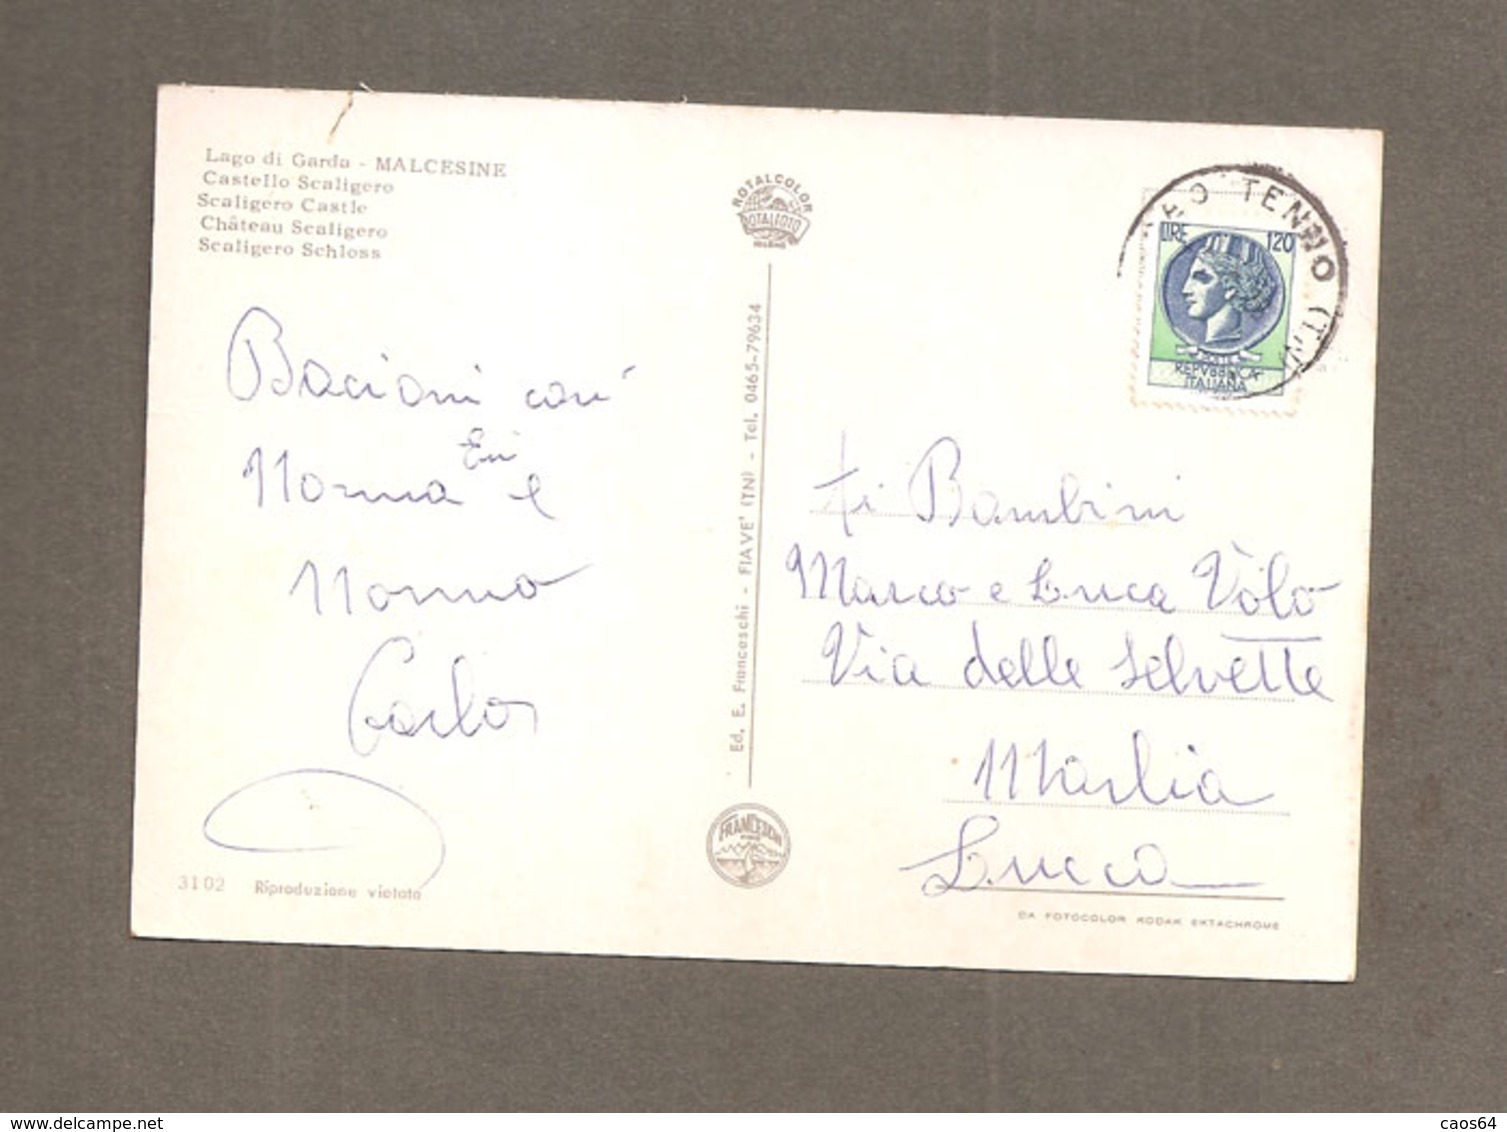 Lago di Garda - MALCESINE
Castello Scaligero
Scaligero Castle
Château Scaligero
Scaligero Schloss
Bacioni cari
Nonna Eni e
Nonno
Carlo
3102 Riproduzione vietata
ROTALCOLOR
ROTALFOTO
MILANO
Ed. E. Franceschi - FIAVE' (TN) - Tel. 0465-79634
FRANCESCHI
TENNO (TN)
LIRE 120
POSTE
REPVBBLICA
ITALIANA
Ai Bambini
Marco e Luca Volo
Via delle Selvette
Marlia
Lucca
DA FOTOCOLOR KODAK EKTACHROME
delcampe.net
caos64